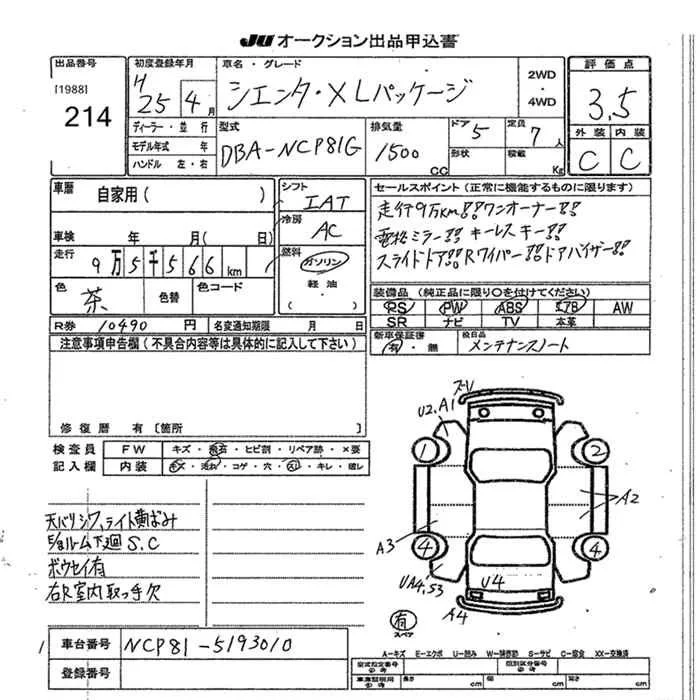 JU オークション出品申込書
出品番号
[1988]
214
初度登録年月
H 25 年 4 月
ディーラー・並 行
モデル年式 年
ハンドル 左・右
車名・グレード
シエンタ・XLパッケージ
2WD
・
4WD
型式
DBA-NCP81G
排気量
1500
CC
ドア 5
形状
定員
7 人
積載
Kg
評価点
3.5
外装 内装
C C
車歴
自家用( )
車検 年 月( 日)
走行 9万5千566 km
色 茶
色替
色コード
シフト
IAT
冷房
AC
燃料
ガソリン
軽油
・( )
セールスポイント(正常に機能するものに限ります)
走行9万km!! ワンオーナー!!
電格ミラー!! キーレスキー!!
スライドドア!! Rワイパー!! ドアバイザー!!
装備品(純正品に限り○を付けてください)
PS PW ABS エアB AW
SR ナビ TV 本革
新車保証書
有・無
後日品
メンテナンスノート
R券 10490 円
名変通知期限 月 日
注意事項申告欄(不具合内容等は具体的に記入して下さい)
修復歴 有〔箇所 〕
検査員
記入欄
FW
キズ・飛石・ヒビ割・リペア跡・×要
内装
キズ・汚れ・コゲ・穴・スレ・キレ・破レ
天バリシワ、ライト黄ばみ
E/gルーム下廻S.C
ボウセイ有
右R室内取っ手欠
ズレ
U2.A1
1
2
A2
A3
4
4
UA4.S3
U4
A4
有
スペア
1
車台番号
NCP81-5193010
登録番号
A-キズ E-エクボ U-凹み W-補修跡 S-サビ C-腐食 XX-交換済
型式指定番号
類別区分番号
長さ cm 幅 cm 高さ cm